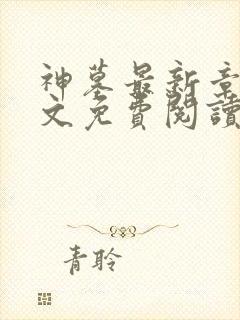 神墓最新章
文免費閱讀
青聆